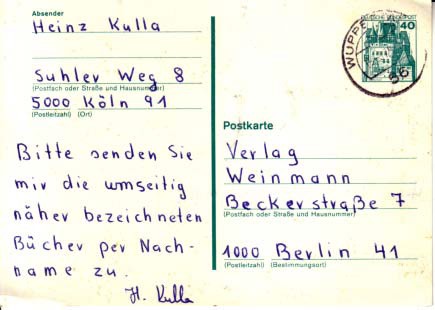 Absender
Heinz Kulla
Suhler Weg 8
(Postfach oder Straße und Hausnummer)
5000 Köln 91
(Postleitzahl) (Ort)
Bitte senden Sie
mir die umseitig
näher bezeichneten
Bücher per Nach-
name zu.
H. Kulla
DEUTSCHE BUNDESPOST
40
WUPPE
56
Postkarte
Verlag
Weinmann
Beckerstraße 7
(Postfach oder Straße und Hausnummer)
1000 Berlin 41
(Postleitzahl) (Bestimmungsort)